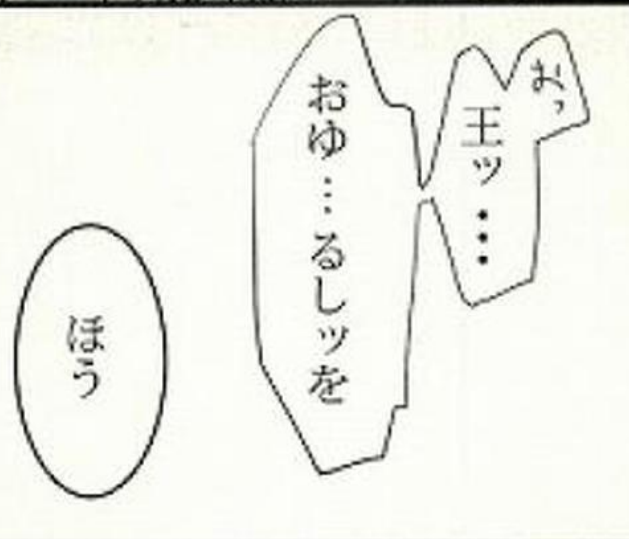 おっ
王ッ…
おゆ…るしッを
ほう